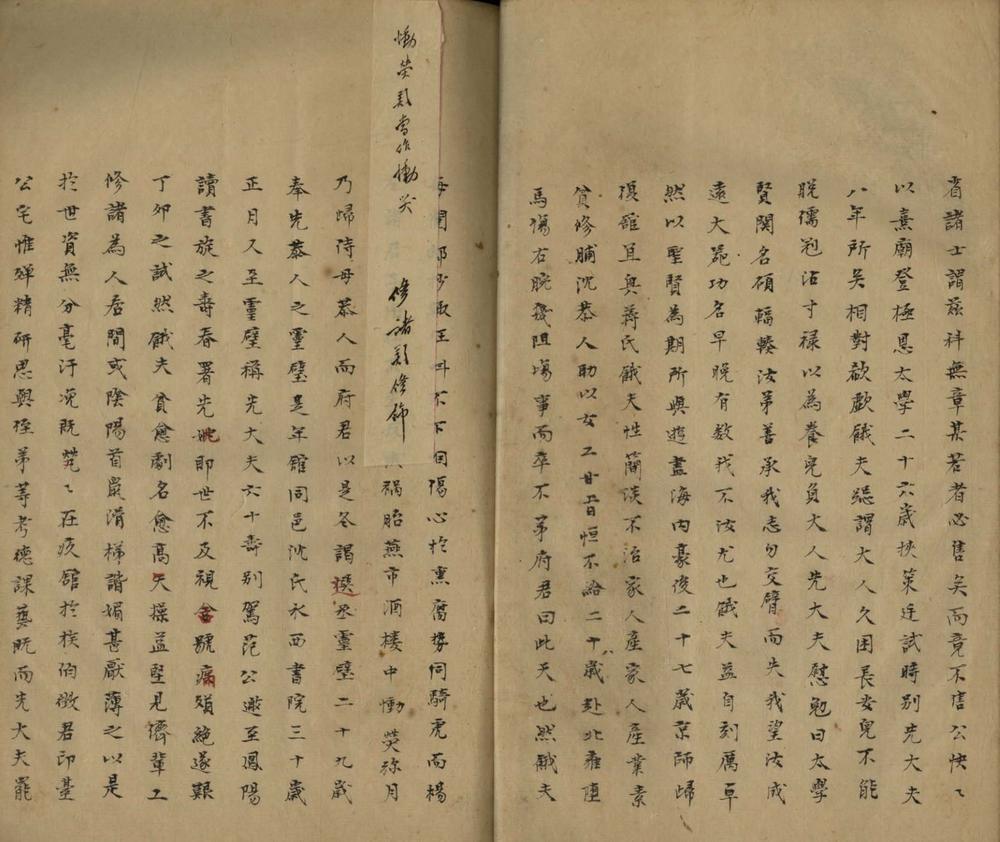 省諸士謂茲科無章某若者必售矣而竟不售公怏〻
以熹廟登極恩太學二十六歲挾策廷試時別先大夫
八年所矣相對歡歔餓夫跽謂大人久困長安兒不能
脫儒冠沾寸祿以為養兒負大人先大夫慰勉曰太學
賢關名碩輻輳汝第善承我志勿交臂而失我望汝成
遠大範功名早晚有數我不汝尤也餓夫益自刻厲卓
然以聖賢為期所與遊盡海内豪俊二十七歲京師歸
復館且與蔣氏餓夫性簡淡不治家人產家人產業素
貧修脯沈恭人助以女工甘旨恒不給二十八歲赴北雍墮
馬傷右腕幾阻場事而卒不第府君曰此天也然餓夫
每聞邸抄
心於熏腐勢同騎虎而楊
禍胎燕市酒樓中慟熒弥月
乃歸侍母恭人而府君以是冬謁選丞靈璧二十九歲
奉先恭人之靈璧是年館同邑沈氏水西書院三十歲
正月又至靈璧稱先大夫六十壽別駕范公邀至鳳陽
讀書旋之壽春署先妣即世不及視含號痛殞絕遂艱
丁卯之試然餓夫貧愈劇名愈高矢操益堅見儕輩工
修諸為人居間或陰陽首鼠滑梯諧媚甚厭薄之以是
於世資無分毫汙況既煢〻在疚館於族伯徵君印臺
公宅惟殫精研思與侄弟等考德課藝既而先大夫罷
慟熒疑當作慟哭
修諸疑修飾